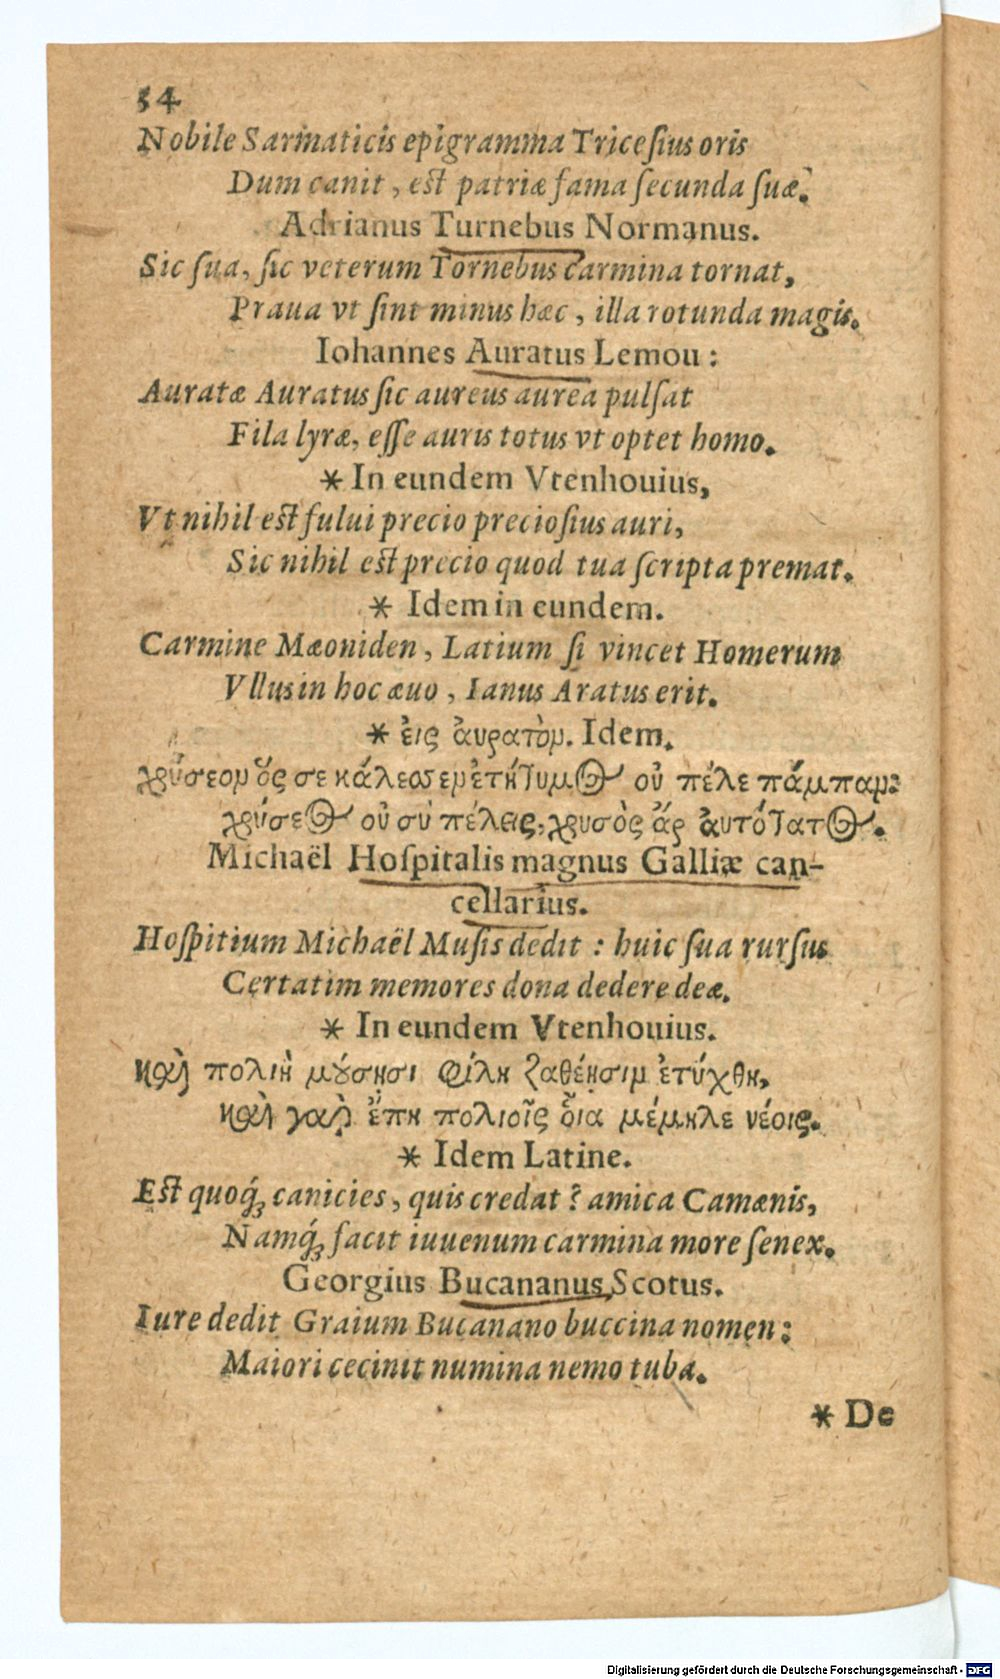 54
Nobile Sarmaticis epigramma Tricesius oris
Dum canit, est patriæ fama secunda suæ.
Adrianus Turnebus Normanus.
Sic sua, sic veterum Tornebus carmina tornat,
Praua vt sint minus hæc, illa rotunda magis.
Iohannes Auratus Lemou:
Auratæ Auratus sic aureus aurea pulsat
Fila lyræ, esse auris totus vt optet homo.
* In eundem Vtenhouius,
Vt nihil est fului precio preciosius auri,
Sic nihil est precio quod tua scripta premat.
* Idem in eundem.
Carmine Mæoniden, Latium si vincet Homerum
Vllus in hoc æuo, Ianus Aratus erit.
* ἐις ἀυρατὸν. Idem.
χρύσεον ὅς σε κάλεσσεν ἐτήτυμος οὐ πέλε πάμπαν:
χρύσεος οὐ σὺ πέλεις, χρυσὸς ἄρ ἀυτότατος.
Michaël Hospitalis magnus Galliæ can-
cellarius.
Hospitium Michaël Musis dedit: huic sua rursus
Certatim memores dona dedere deæ.
* In eundem Vtenhouius.
καὶ πολιὴ μούσησι φίλη ζαθέησιν ἐτύχθη,
καὶ γὰρ ἔπη πολιοῖς οἷα μέμηλε νέοις.
* Idem Latine.
Est quoq́ꝫ canicies, quis credat? amica Camænis,
Namq́ꝫ facit iuuenum carmina more senex.
Georgius Bucananus Scotus.
Iure dedit Graium Bucanano buccina nomen:
Maiori cecinit numina nemo tuba.
* De
Digitalisierung gefördert durch die Deutsche Forschungsgemeinschaft - DFG